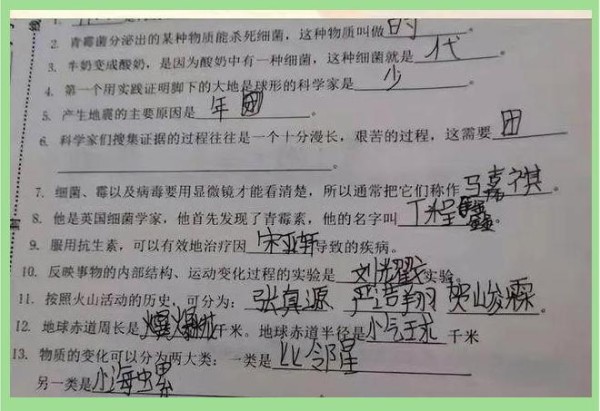 2. 青霉菌分泌出的某种物质能杀死细菌，这种物质叫做 的
3. 牛奶变成酸奶，是因为酸奶中有一种细菌，这种细菌就是 代 。
4. 第一个用实践证明脚下的大地是球形的科学家是 少 。
5. 产生地震的主要原因是 年 团 。
6. 科学家们搜集证据的过程往往是一个十分漫长，艰苦的过程，这需要 田
。
7. 细菌、霉以及病毒要用显微镜才能看清楚，所以通常把它们称作 马嘉祺 。
8. 他是英国细菌学家，他首先发现了青霉素，他的名字叫 丁程鑫 。
9. 服用抗生素，可以有效地治疗因 宋亚轩 导致的疾病。
10. 反映事物的内部结构、运动变化过程的实验是 刘耀文 实验。
11. 按照火山活动的历史，可分为： 张真源 严浩翔 贺峻霖 。
12. 地球赤道周长是 千米。地球赤道半径是 千米
13. 物质的变化可以分为两大类：一类是 比邻星
另一类是 小海螺